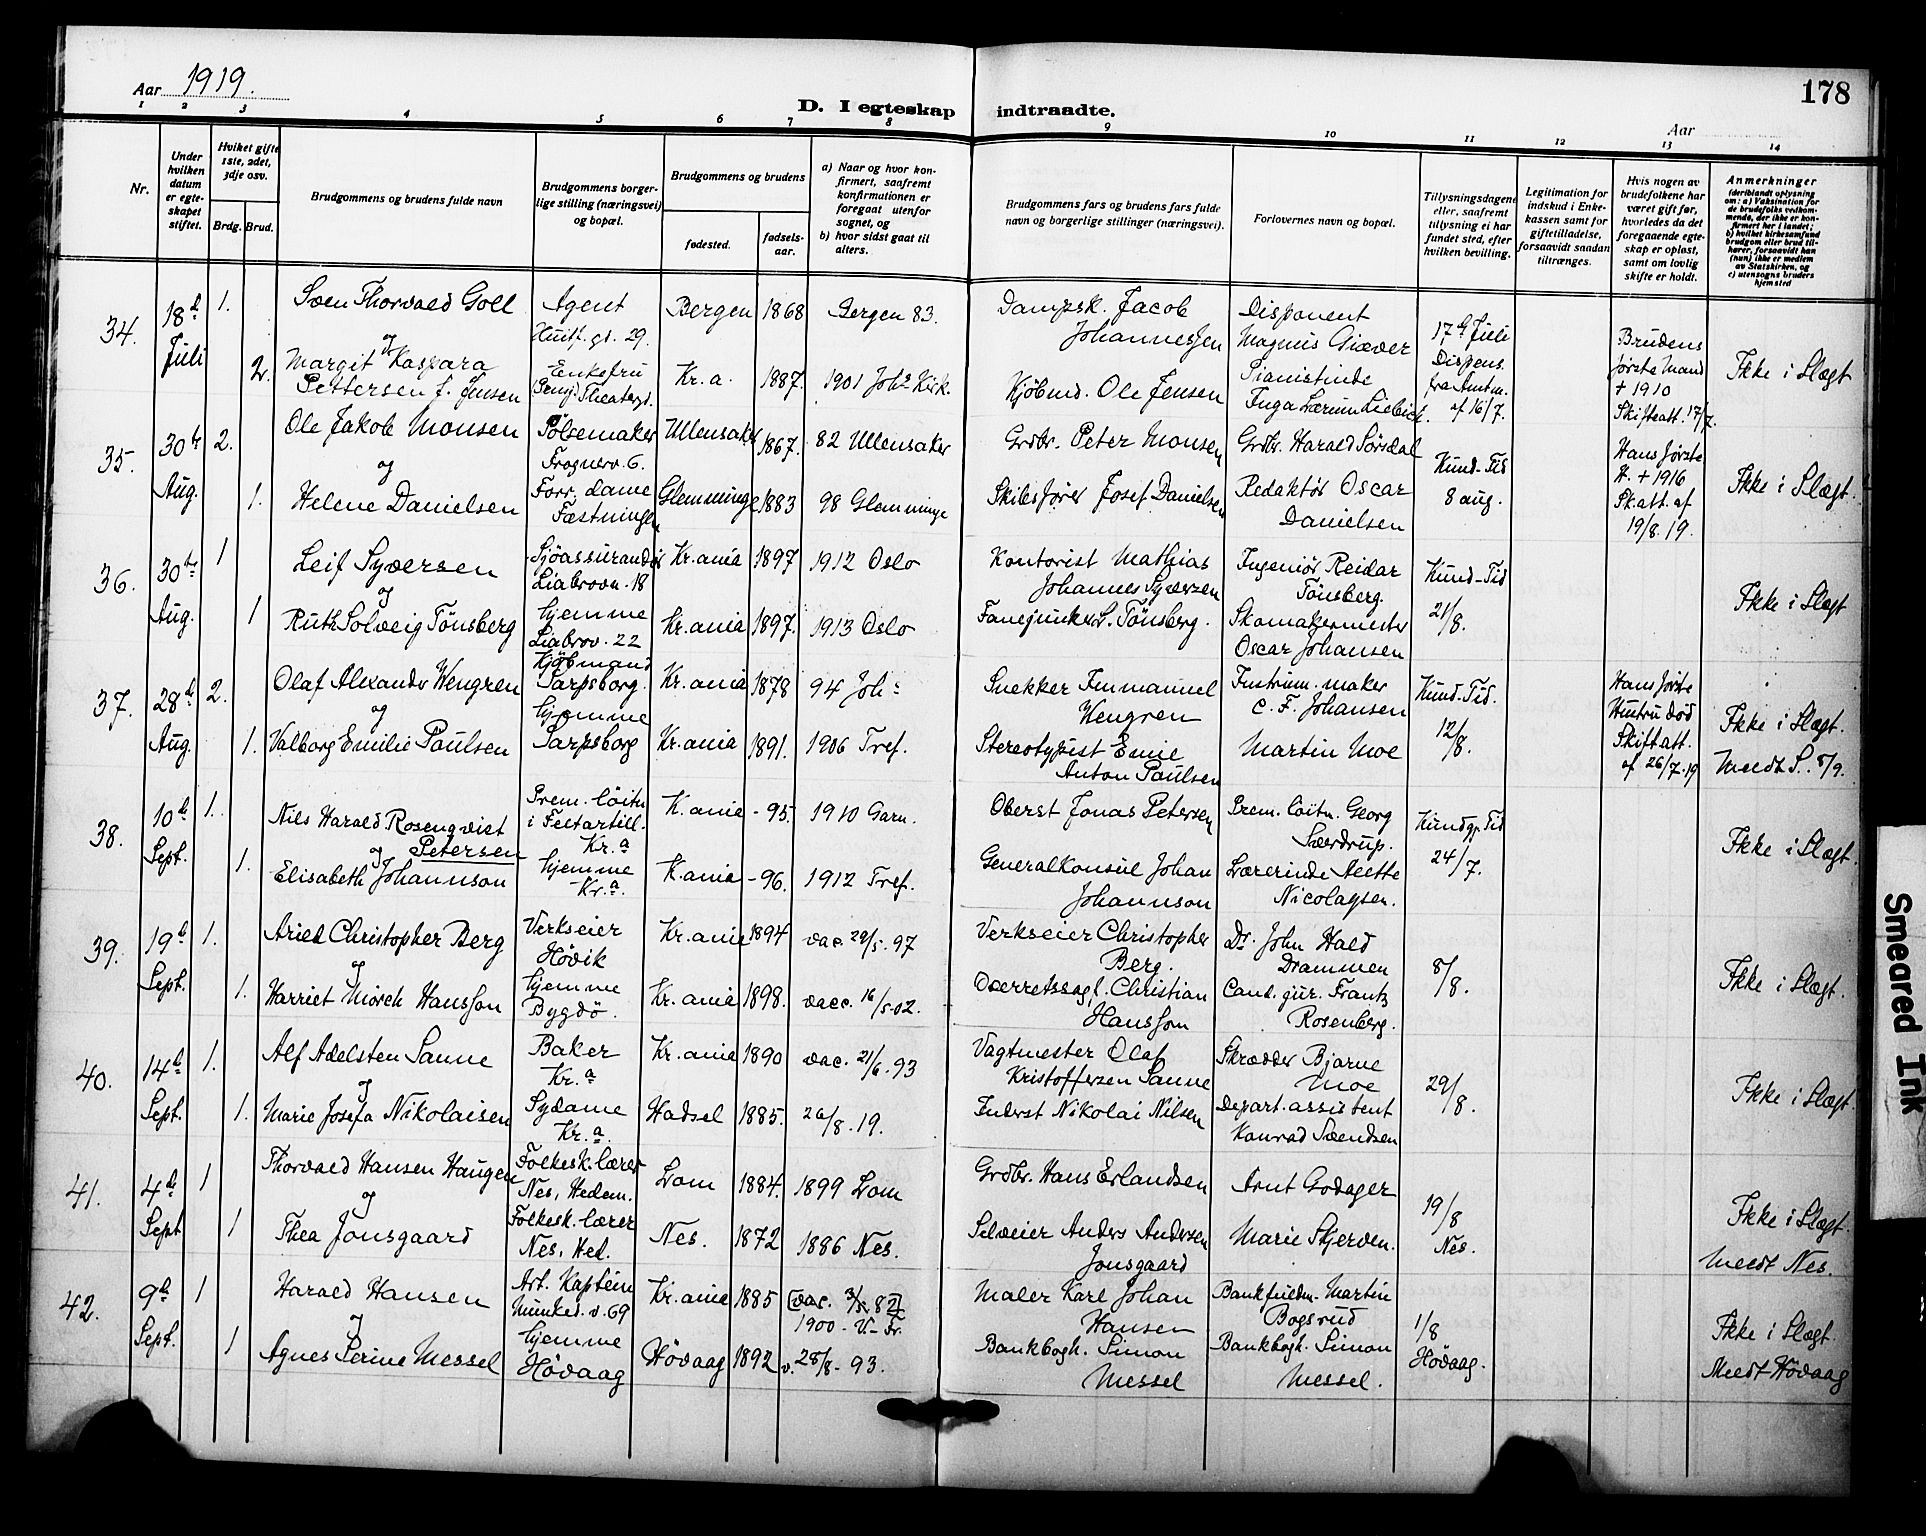 Aar 1919.
178
D. I egteskap indtraadte.
Aar
1 2 3 4 5 6 7 8 9 10 11 12 13 14
Nr.
Under hvilken datum er egteskapet stiftet.
Hvilket gifte 1ste, 2det, 3dje osv.
Brdg. Brud.
Brudgommens og brudens fulde navn
Brudgommens borgerlige stilling (næringsvei) og bopæl.
Brudgommens og brudens
fødested.
fødselsaar.
a) Naar og hvor konfirmert, saafremt konfirmationen er foregaat utenfor sognet, og
b) hvor sidst gaat til alters.
Brudgommens fars og brudens fars fulde navn og borgerlige stillinger (næringsvei).
Forlovernes navn og bopæl.
Tillysningsdagene eller, saafremt tillysning ei har fundet sted, efter hvilken bevilling.
Legitimation for indskud i Enkekassen samt for giftetilladelse, forsaavidt saadan tiltrænges.
Hvis nogen av brudefolkene har været gift før, hvorledes da det foregaaende egteskap er opløst, samt om lovlig skifte er holdt.
Anmerkninger
(deriblandt oplysning om: a) Vaksination for de brudefolks vedkommende, der ikke er konfirmert her i landet;
b) hvilket kirkesamfund brudgom eller brud tilhører, forsaavidt han (hun) ikke er medlem av Statskirken, og
c) utensogns bruders hjemsted
34. 18d Juli 1. Sven Thorvald Goll Agent Huitf. gt. 29. Bergen 1868 Bergen 83. Dampsk. Jacob Johannessen Disponent Magnus Giæver 17d Juli Dispens. fra Amtm. af 16/7. Brudens første Mand + 1910 Skifteatt. 17/7. Ikke i Slægt
og
2. Margit Kaspara Pettersen f. Jensen Enkefru Theatergt. Kr.a. 1887. 1901 Johs Kirk. Kjøbmd. Ole Jensen Pianistinde Inga Lærum Liebich.
35. 30te Aug. 2. Ole Jakob Monsen Pølsemaker Frognerv. 6. Ullensaker 1867. 82 Ullensaker Grdbr. Peter Monsen Grdbr. Harald Sørsdal Kund-Tid 8 aug. Hans første H. + 1916 Sk. att. af 19/8. 19. Ikke i Slægt.
og
1. Helene Danielsen Forr. dame Fæstningen Glemminge 1883 98 Glemminge Skibsfører Josef Danielsen Redaktør Oscar Danielsen
36. 30te Aug. 1 Leif Syversen Sjøassurandør Liabrovn. 18 Kr.ania 1897 1912 Oslo Kontorist Mathias Johannes Syversen Ingeniør Reidar Tönsberg. Kund-Tid 21/8. Ikke i Slægt
og
1 Ruth Solveig Tönsberg hjemme Liabrov. 22 Kr.ania 1897. 1913 Oslo Fanejunker S. Tönsberg. Skomakermester Oscar Johansen
37. 28d Aug. 2. Olaf Alexander Wengren Kjöbmand Sarpsborg. Kr.ania 1878 94 Joh. Snekker Immanuel Wengren Instrum. maker C. F. Johansen Kund-Tid. 12/8. Hans første Hustru død Skift att. af 26/7.19 Ikke i Slægt.
og
1. Valborg Emilie Paulsen hjemme Sarpsborg Kr.ania 1891. 1906 Tref. Stereotypist Emil Anton Paulsen Martin Moe Meldt S. 5/9.
38. 10d Sept. 1. Nils Harald Rosenqvist Petersen Prem. löitn. i Feltartill. Kr.a K.ania - 95. 1910 Garn. Oberst Jonas Petersen Prem. löitn. Georg Sverdrup. Kundgj. Tid 24/7. Ikke i Slægt.
og
1. Elisabeth Johannson hjemme Kr.a. K.ania - 96. 1912 Tref. Generalkonsul Johan Johannson Lærerinde Nicolaysen.
39. 19d Sept. 1. Arild Christopher Berg Verkseier Hövik Kr.ania 1894 vac. 29/5. 97 Verkseier Christopher Berg. Dr. John Hald Drammen 8/8. Ikke i Slægt.
og
1. Harriet Mörch Hansson hjemme Bygdö. Kr.ania 1898. vacc. 16/5.02. Overretssagf. Christian Hansson Cand. jur. Frantz Rosenberg.
40. 14d Sept. 1. Alf Adelsten Sanne Baker Kr.a Kr.ania 1890 vac. 21/6. 93 Vagtmester Olaf Kristoffersen Sanne Skrædder Bjarne Moe 29/8. Ikke i Slægt.
og
1. Marie Josefa Nikolaisen Sydame Kr.a. Hadsel 1885. 26/8. 19. Inderst Nikolai Nilsen Depart. assistent Konrad Svendsen
41. 4d Sept 1 Thorvald Hansen Haugen Folkesk. lærer Nes, Hedem. Lom 1884. 1899 Lom Grdbr. Hans Erlandsen Arnt Godager 19/8 Nes. Ikke i Slægt.
og
1 Thea Jonsgaard Folkesk. lærer Nes, Hed. Nes. 1872 1886 Nes. Selveier Anders Andersen Jonsgaard Marie Skjerven. Meldt Nes.
42. 9d Sept. 1 Harald Hansen Art. Kaptein Munked. v. 69 Kr.ania 1885 [vac. 3/5. 87] 1900 - V-Fr. Maler Karl Johan Hansen Bankfuldm. Martin Bogsrud 1/8 Hövaag. Ikke i Slægt.
og
1 Agnes Perine Messel hjemme Hövaag Hövaag 1892 v. 28/8. 93. Bankbogh. Simon Messel Bankbogh. Simon Messel. Meldt Hövaag
Smeared Ink